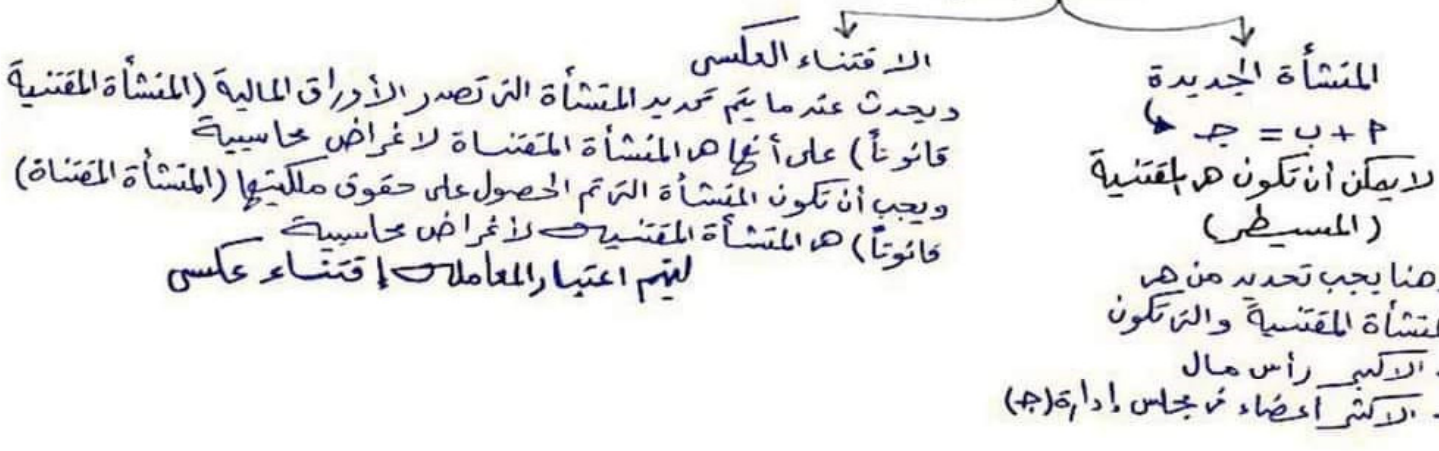 المنشأة الجديدة
أ + ب = جـ
لا يمكن أن تكون هى المقتنية
(المسيطر)
وهنا يجب تحديد من هى
المنشأة المقتنية والتى تكون
الاكبر رأس مال
الاكثر أعضاء فى مجلس إدارة (جـ)
الاقتناء العكسى
ويحدث عندما يتم تحديد المنشأة التى تصدر الأوراق المالية (المنشأة المقتنية
قانوناً) على أنها هى المنشأة المقتناة لاغراض محاسبية
ويجب أن تكون المنشأة التى تم الحصول على حقوق ملكيتها (المنشأة المقتناة)
قانوناً) هى المنشأة المقتنية لأغراض محاسبية
ليتم اعتبار المعاملة إقتناء عكسى